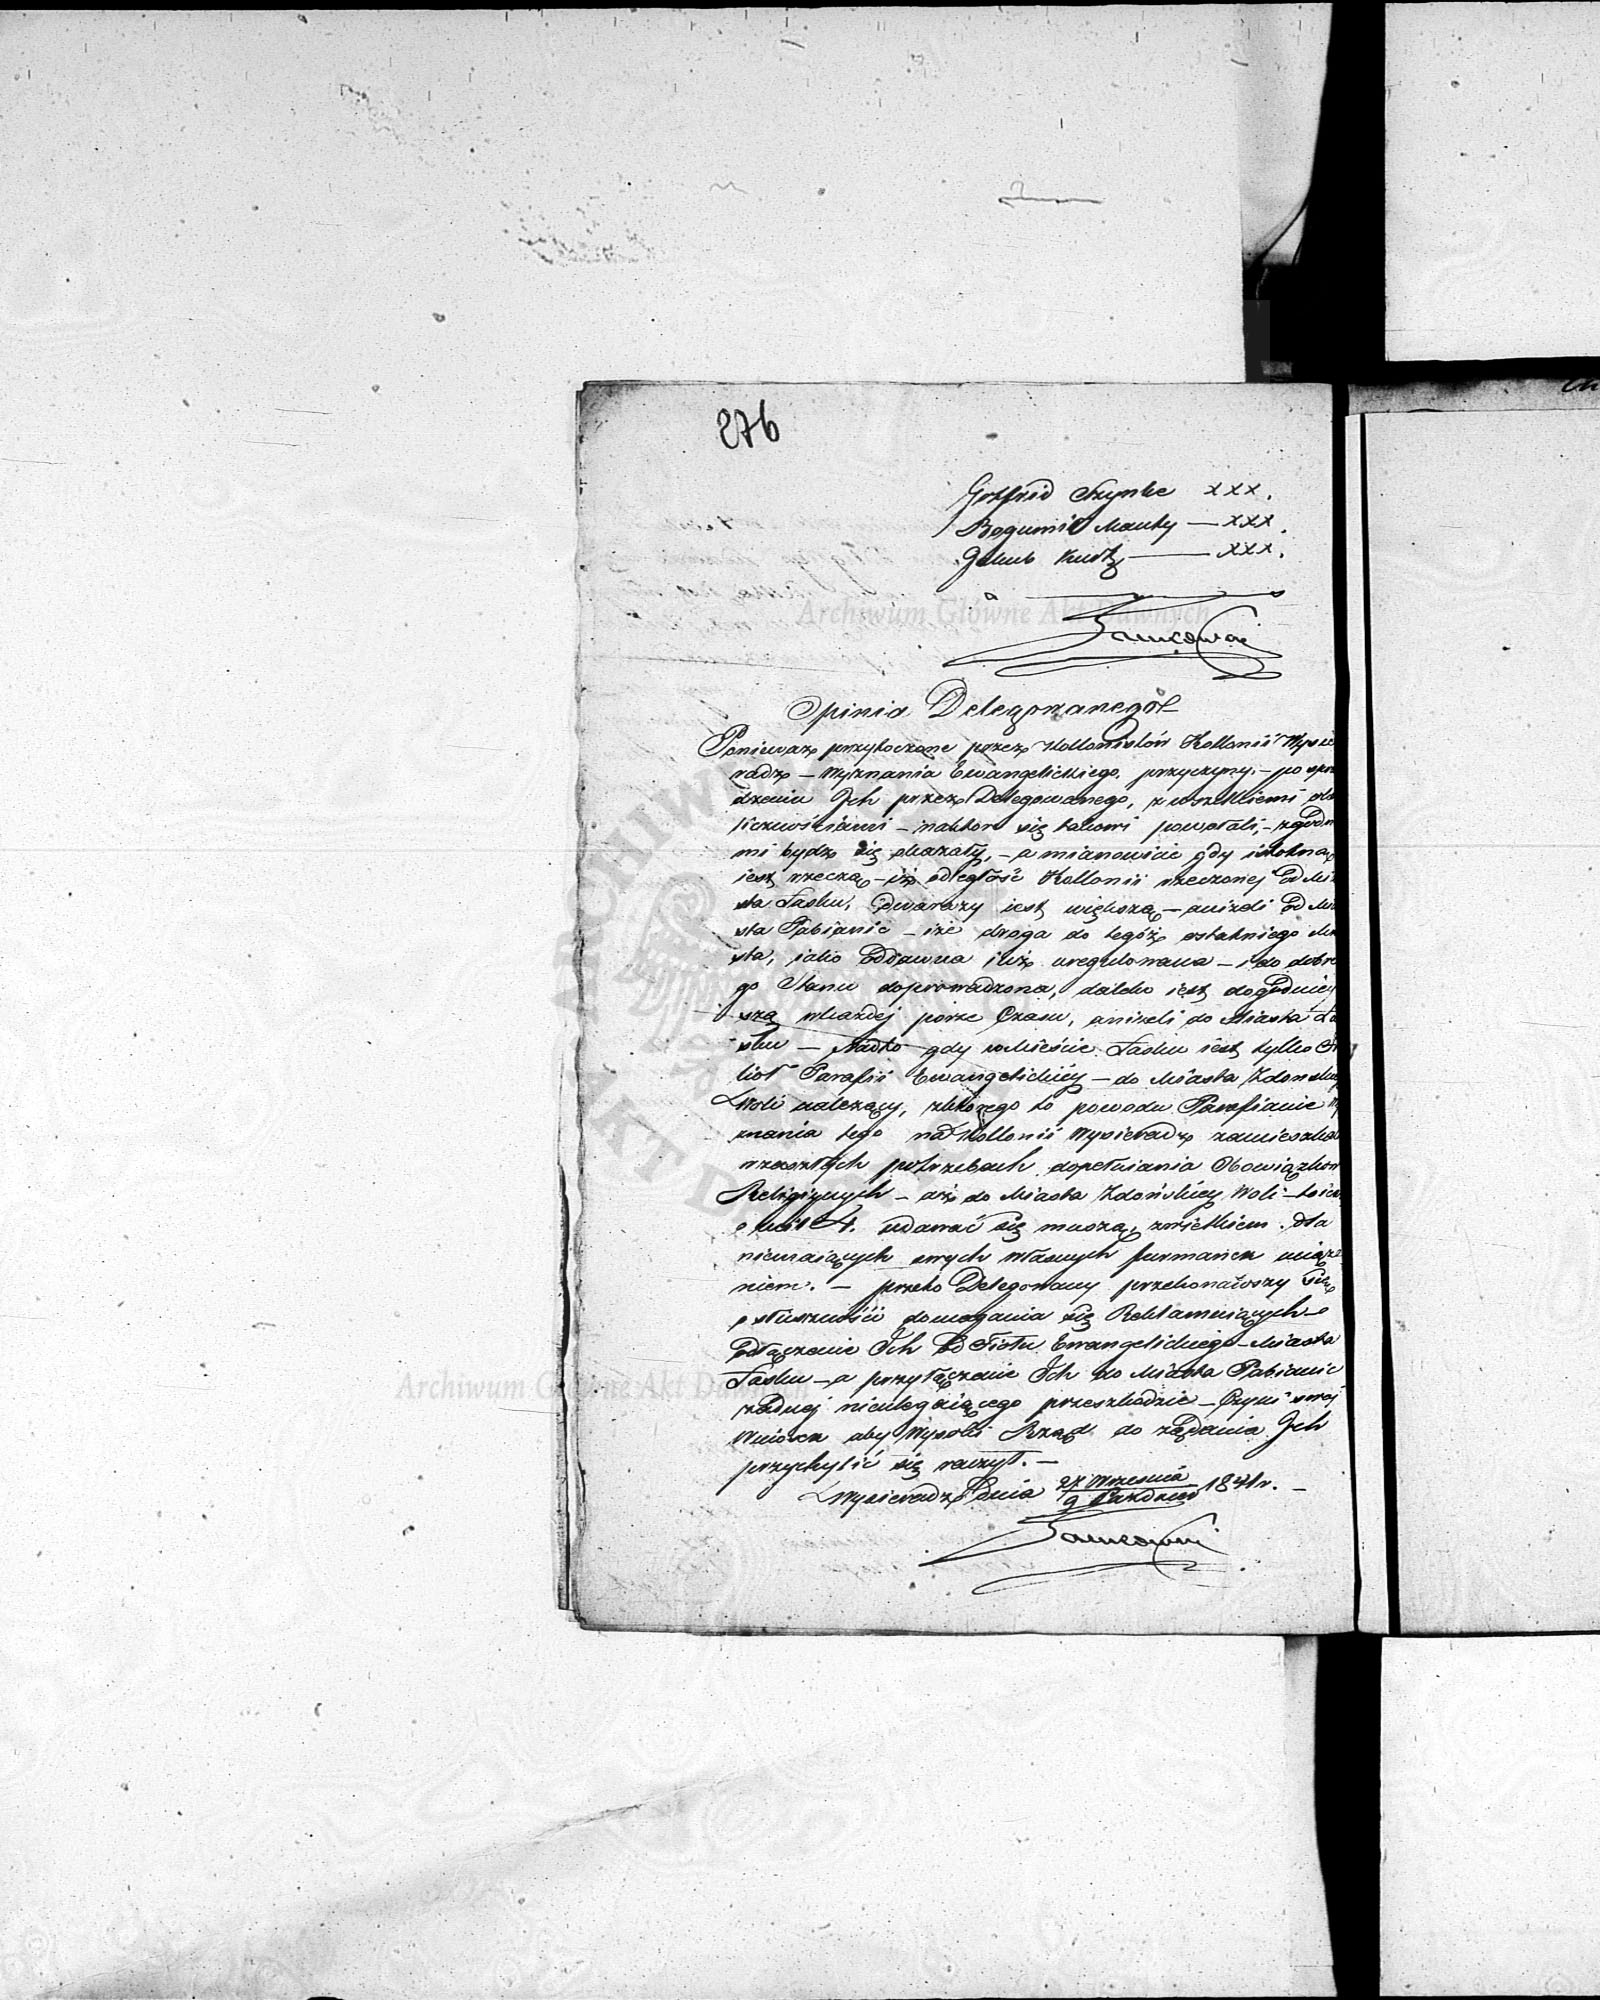 276
Gottfrid Szynke xxx.
Bogumił Mantey — xxx.
Jakub Kurtz — xxx.
Archiwum Główne Akt Dawnych
Opinia Delegowanego
Ponieważ przytoczone przez Kollonistów Kollonii Wysie
radz — wyznania Ewangelickiego, przyczyny, — po spra
dzeniu Ich przez Delegowanego, z wszelkiemi oko
licznościami — na które się takowi powołali, — zgodne
mi bydź się okazały, — a mianowicie gdy istotną
iest rzeczą — iż odległość Kollonii rzeczonej od Mia
sta Łasku, dwa razy iest większą — aniżeli od Mia
sta Pabianic — iże droga do tegóż ostatniego Mia
sta, iako oddawna iuż uregulowana — i do dobre
go Stanu doprowadzona, daleko iest dogodniey
szą w każdej porze Czasu, aniżeli do Miasta Ła
sku — Nadto gdy w Mieście Łasku iest tylko Fi
liał Parafii Ewangelickiéy — do Miasta Zduńskiey
Woli należący, z którego to powodu Parafianie wy
znania tego na Kollonii Wysieradz zamieszkali
w wszelkich potrzebach dopełniania Obowiązków
Religijnych — aż do Miasta Zduńskiéy Woli —
o mil 4. udawać się muszą, z wielkiem dla
niemaiących swych własnych furmanek uciąże
niem. — przeto Delegowany przekonawszy się
o słuszności domagania się Reklamuiących o
Odłączenie Ich od Filiału Ewangelickiego Miasta
Łasku — a przyłączenie Ich do Miasta Pabianic
żadnej nieulegaiącego przeszkodzie — Czyni swój
Wniosek aby Wysoki Rząd do żądania Ich
przychylić się raczył. —
w Wysieradzu dnia 27 Września / 9 Paździer 1841 r. —
Archiwum Główne Akt Dawnych